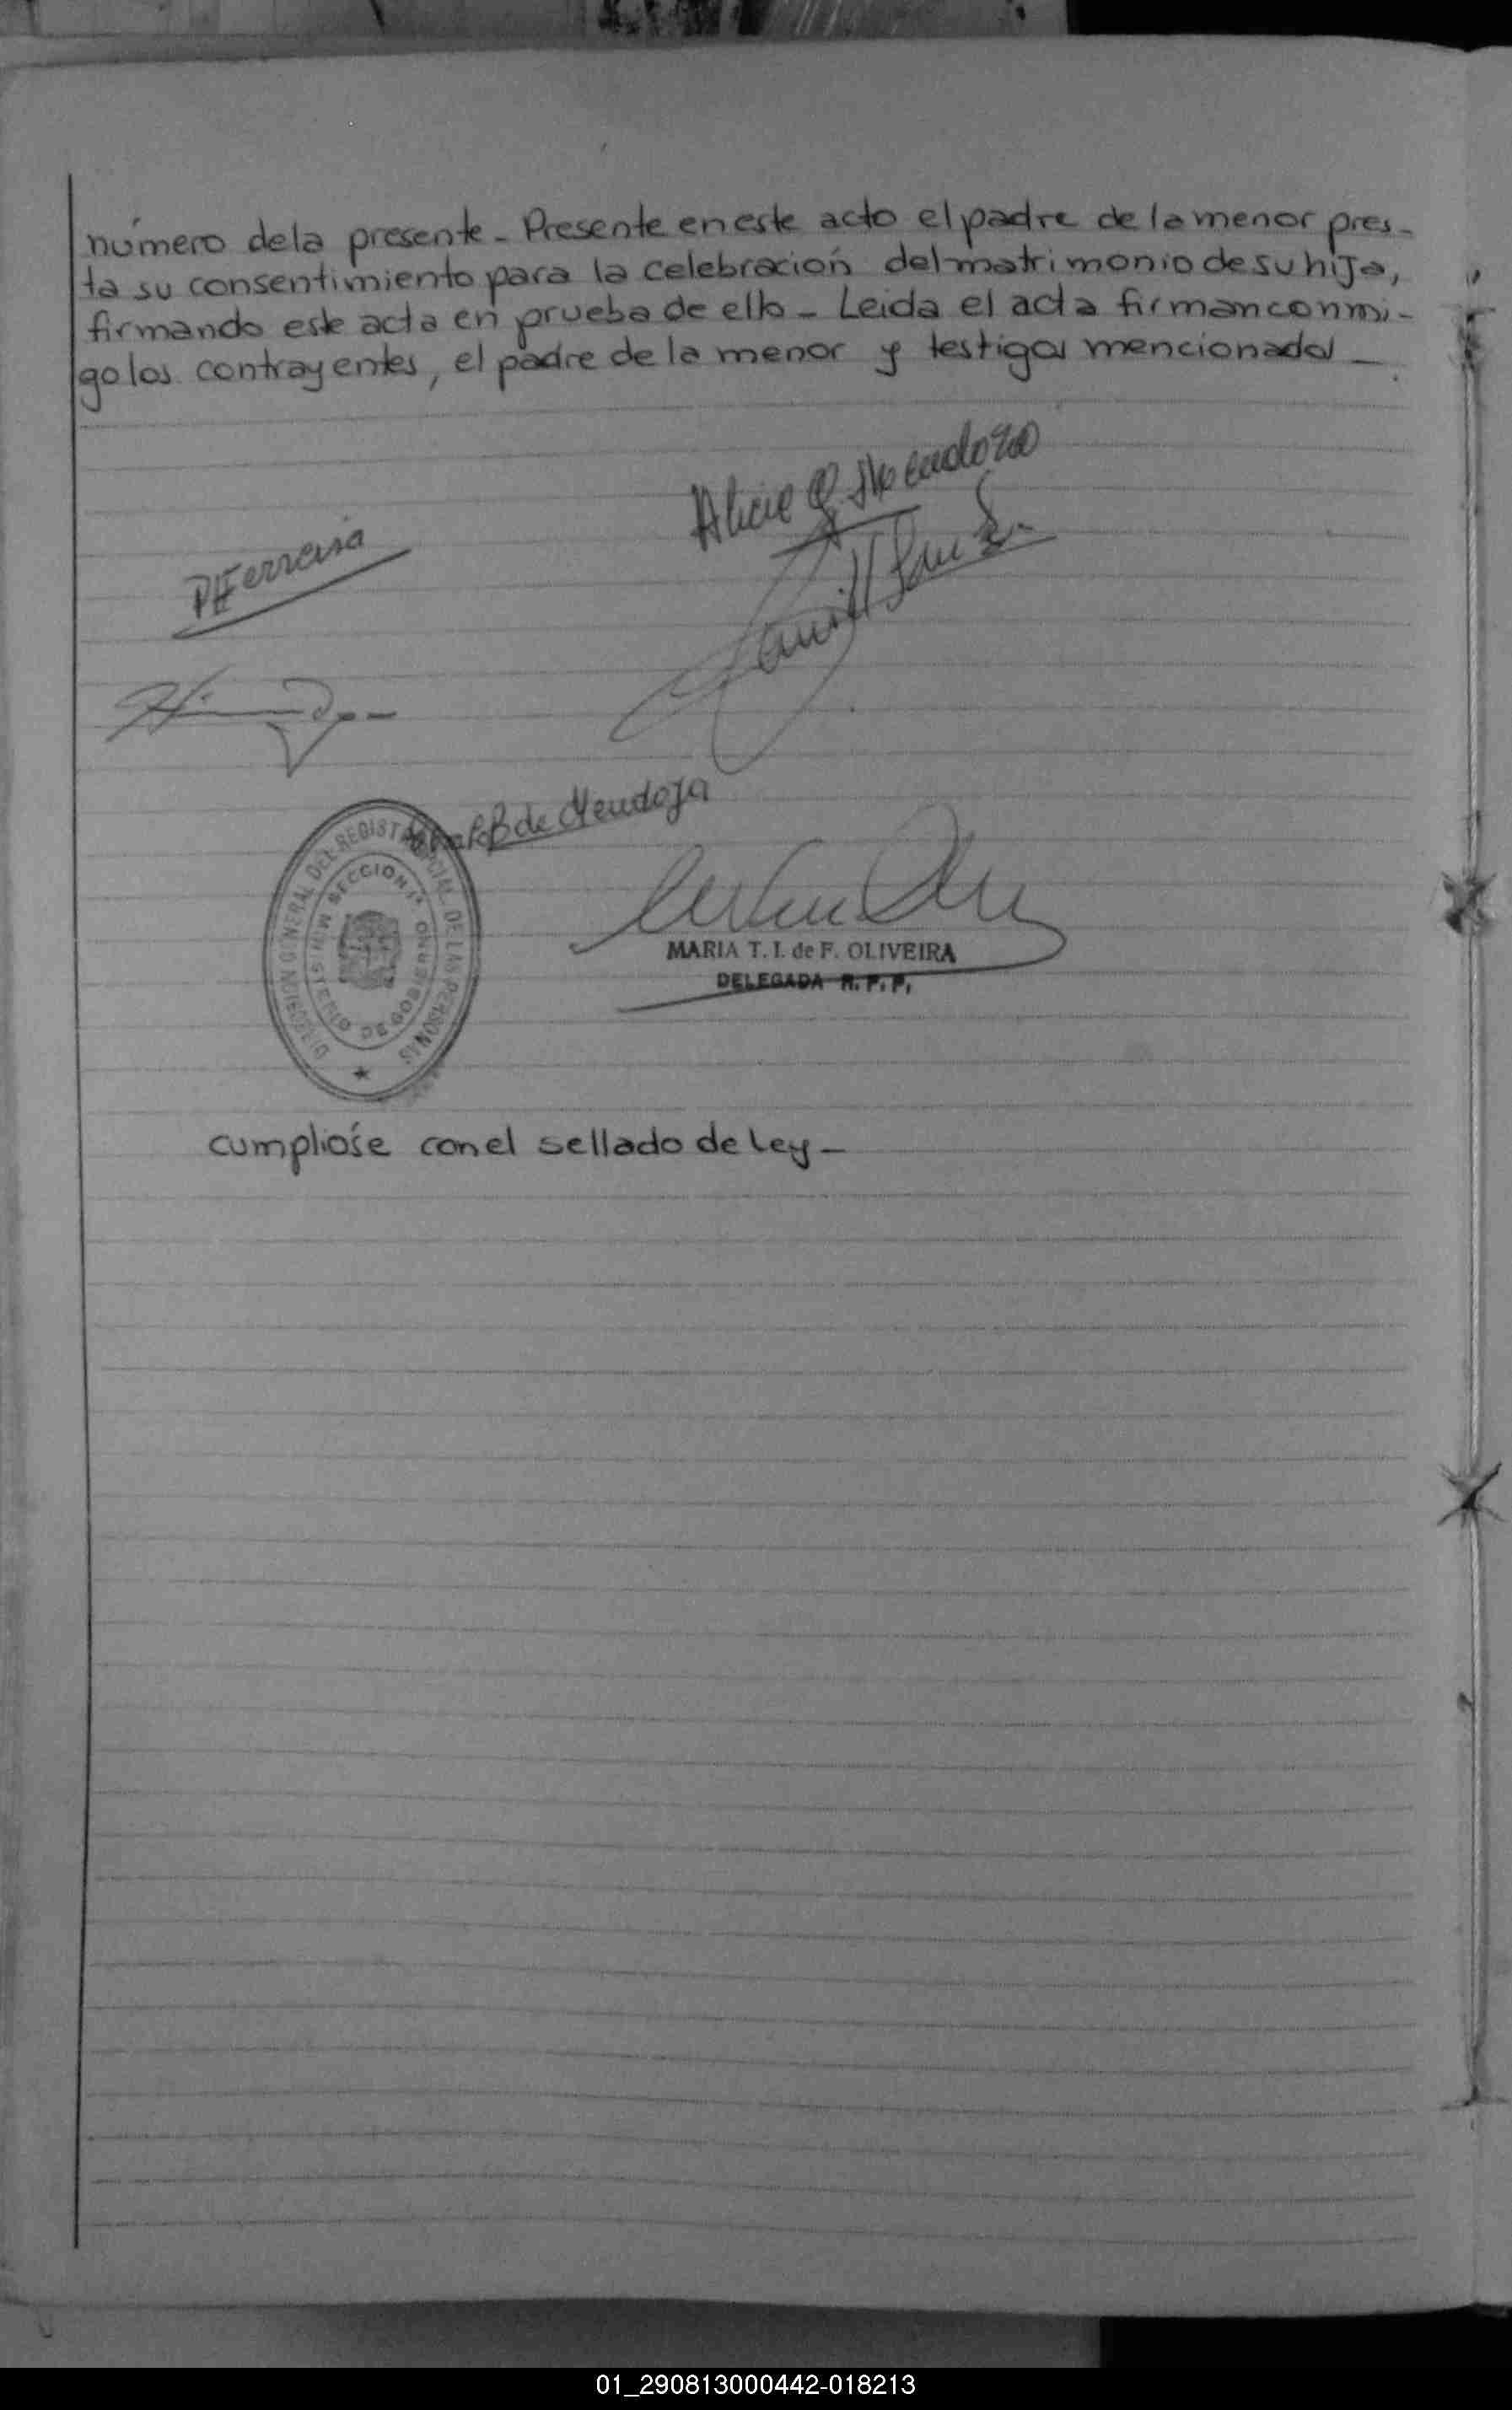 número dela presente - Presente eneste acto elpadre de lamenor pres-
ta su consentimiento para la celebración delmatrimonio desuhija,
firmando este acta en prueba de ello - Leida el acta firmanconmi-
golos contrayentes, el padre de la menor y testigos mencionados -
Alicia G Mendoza
Ferreira
de Mendoza
DIRECCION GENERAL DEL REGISTRO DE LAS PERSONAS
SECCION 1ª
MINISTERIO DE GOBIERNO
MARIA T. I. de F. OLIVEIRA
DELEGADA R. P. P.
cumplióse conel sellado de Ley -
01_290813000442-018213